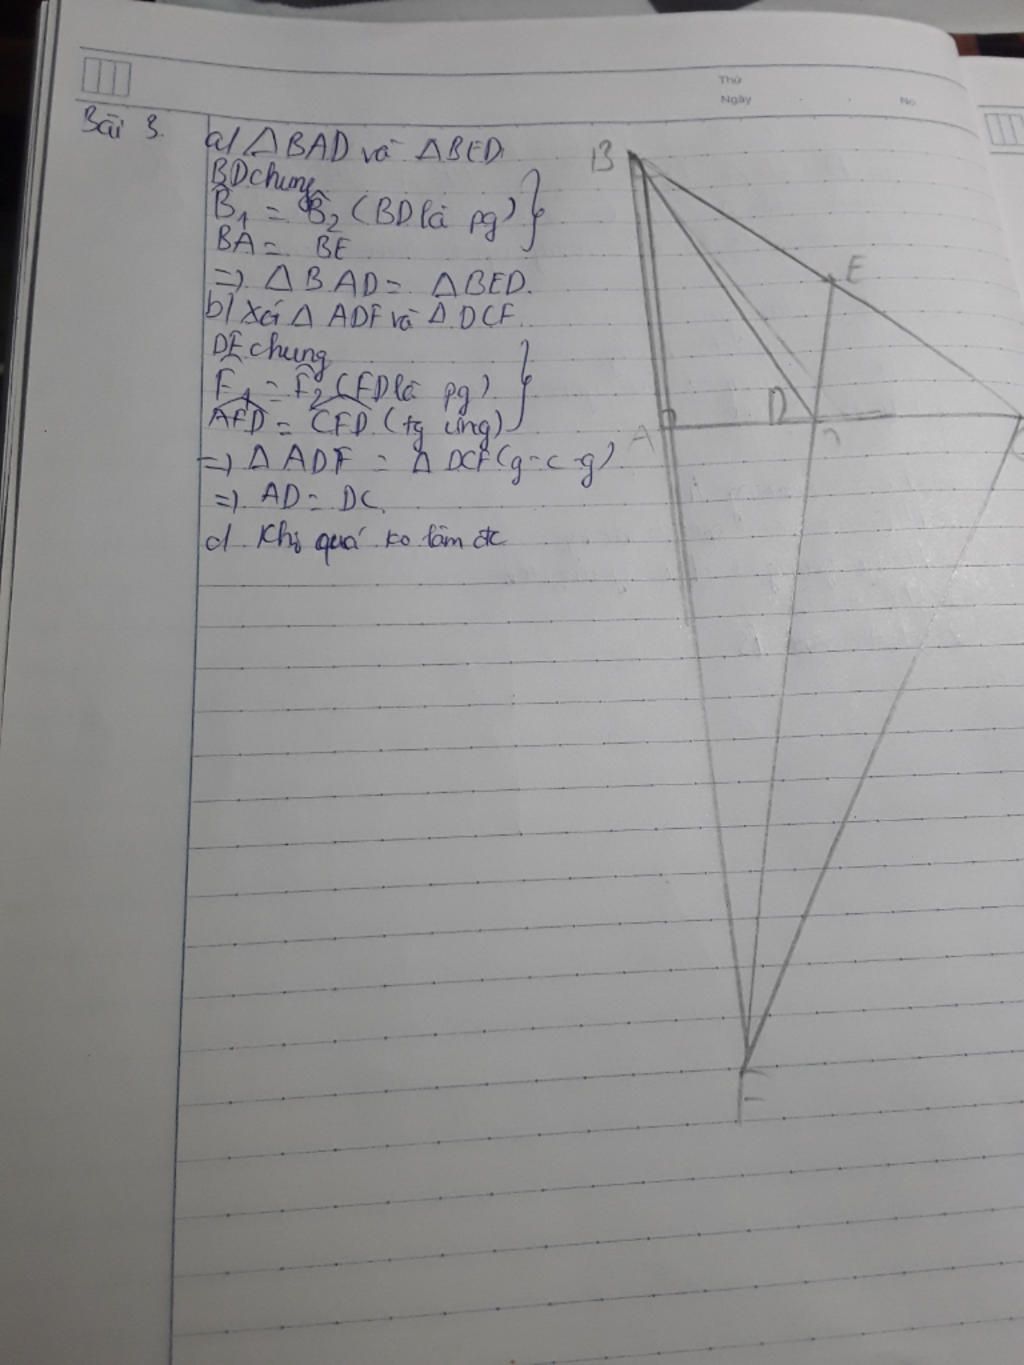 Thứ
Ngày
No.
Bài 3.
a) △BAD và △BED
BD chung
B̂₁ = B̂₂ (BD là pg)
BA = BE
=> △BAD = △BED.
b) Xét △ADF và △DCF
DF chung
F̂₁ = F̂₂ (FD là pg)
AFD = CFD (tg ứng)
=> △ADF = △DCF (g-c-g)
=> AD = DC.
c) Khó quá ko làm đc
B
E
D
A
C
F